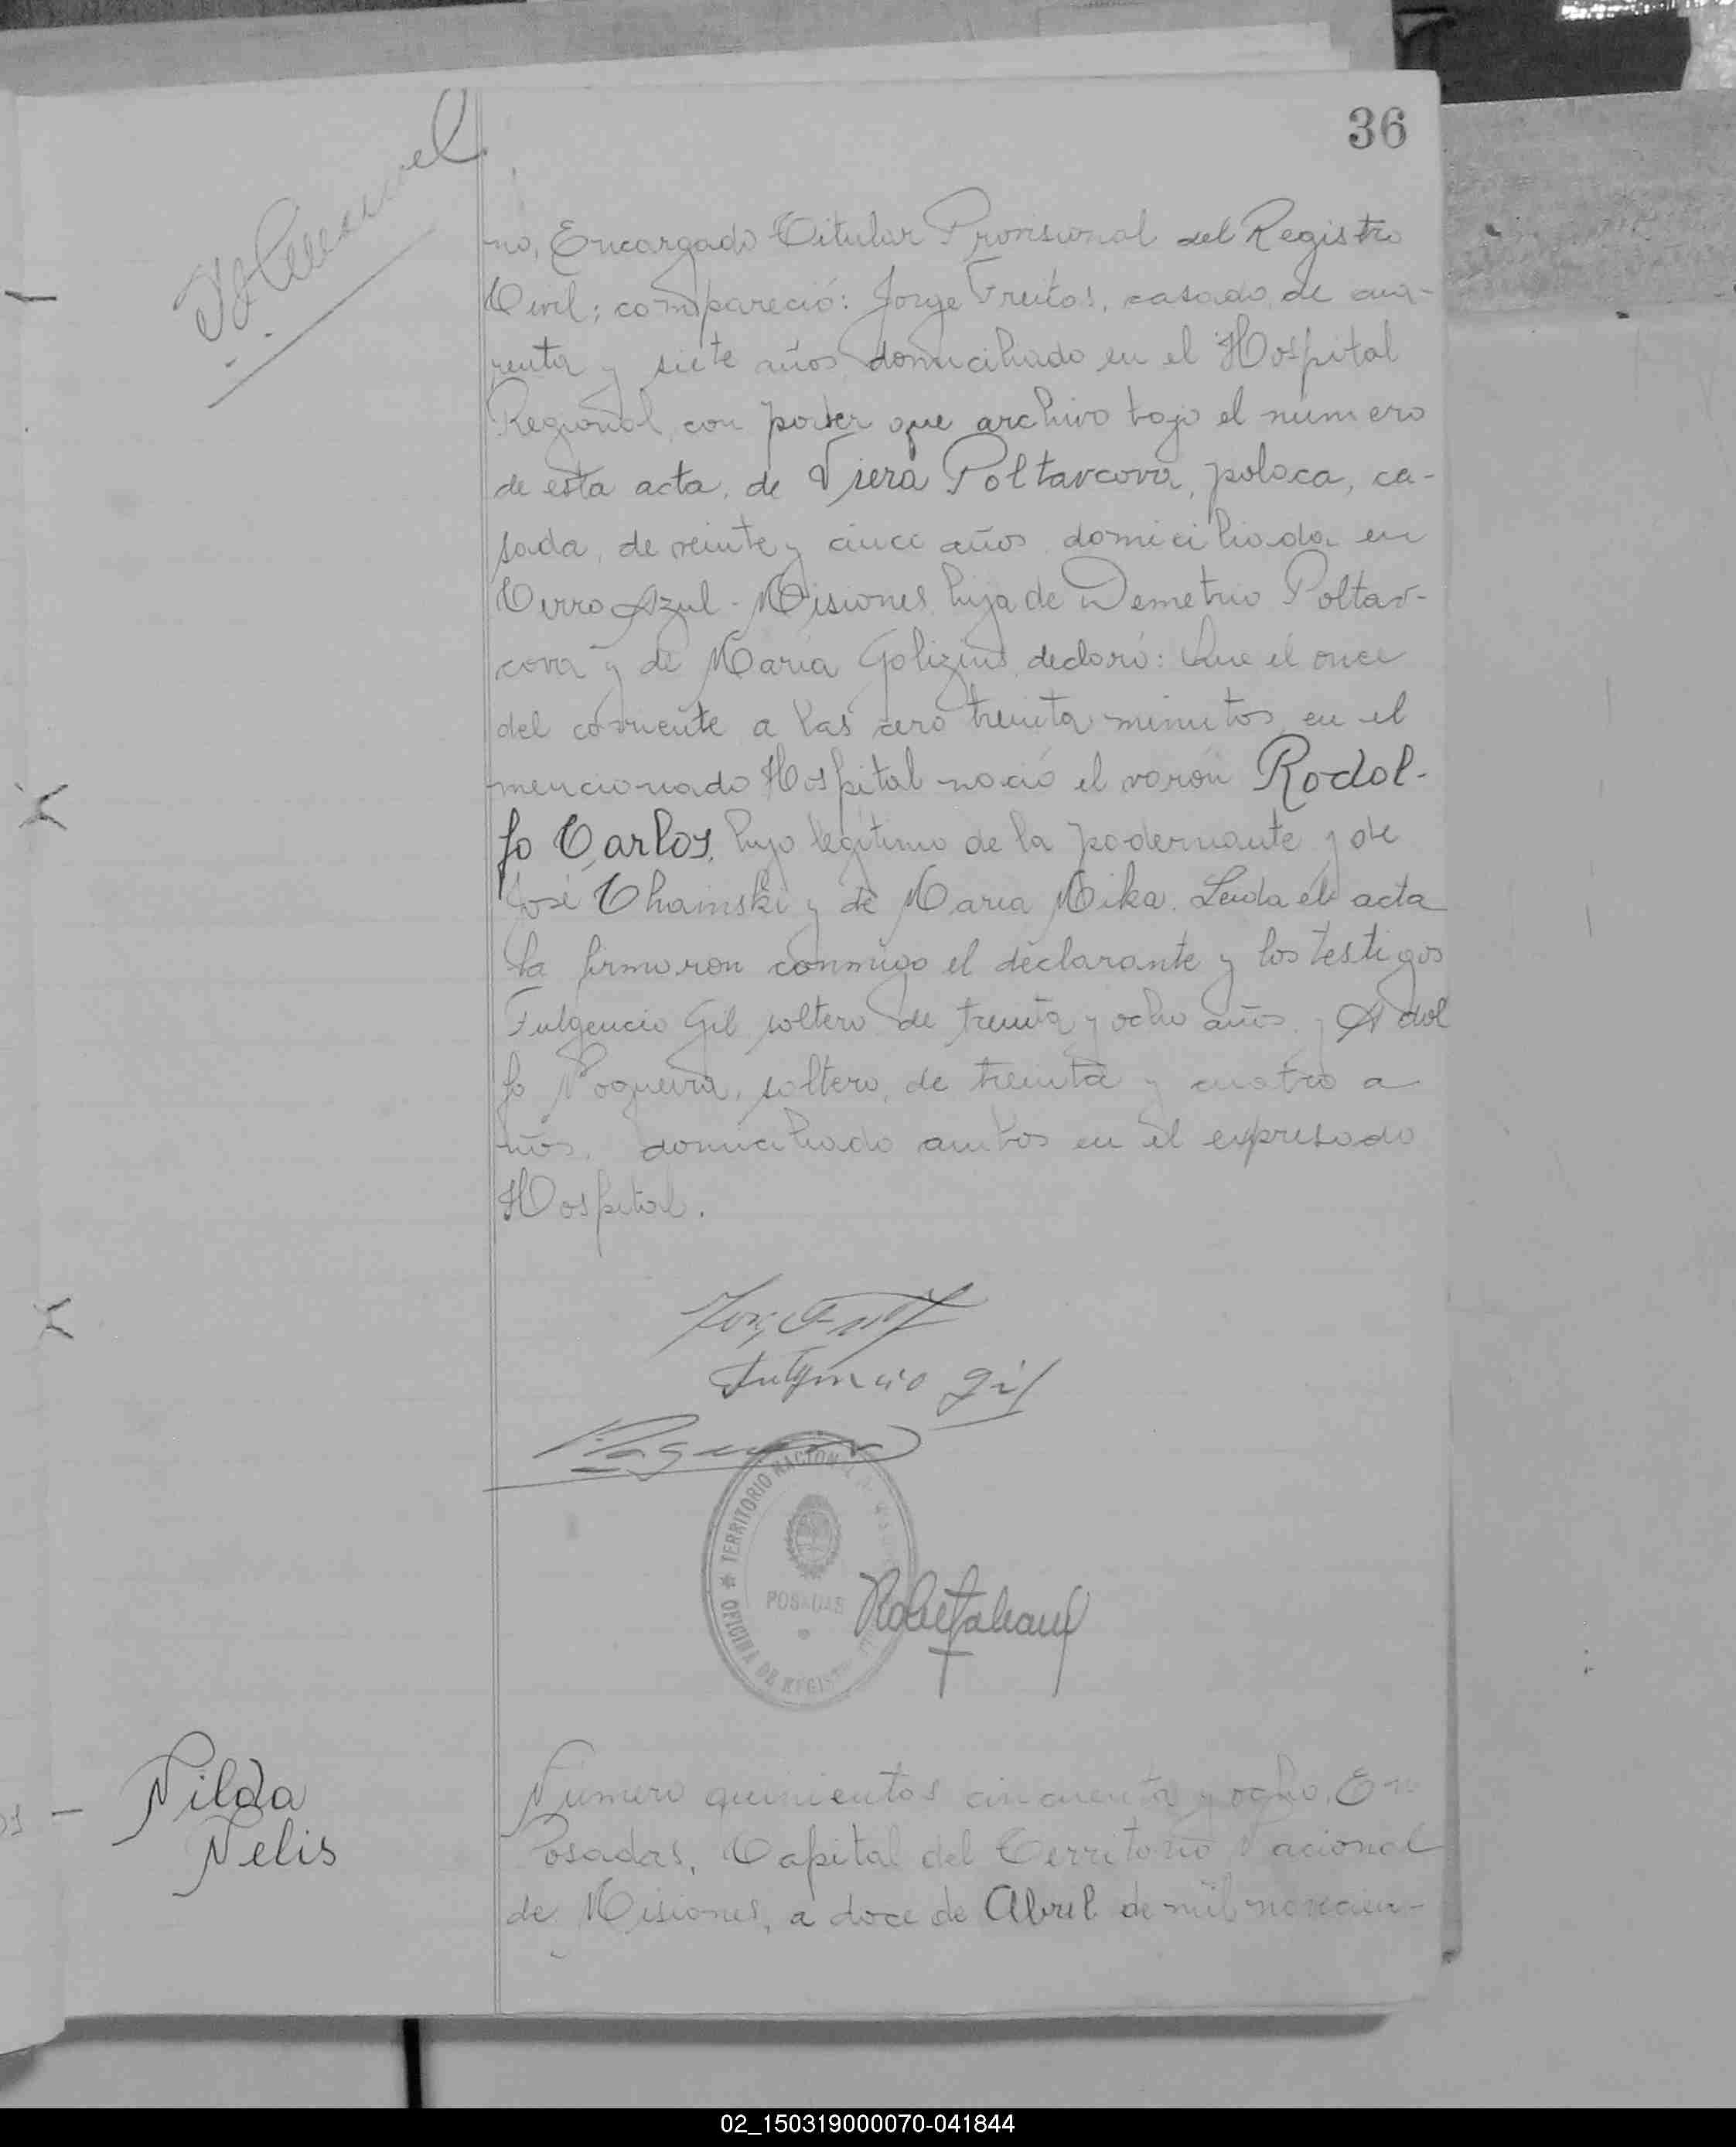 36
no, Encargado Titular Provisional del Registro
Civil; compareció: Jorge Freitas, casado, de cua-
renta y siete años domiciliado en el Hospital
Regional, con poder que archivo bajo el número
de esta acta, de Viera Poltavcova, polaca, ca-
sada, de veinte y cinco años domiciliada en
Cerro Azul - Misiones, hija de Demetrio Poltav-
cova y de María declaró: Que el once
del corriente a las cero treinta minutos, en el
mencionado Hospital nació el varón Rodol-
fo Carlos, hijo legítimo de la podernante y de
José Chainski y de Maria Mika. Leida el acta
la firmaron conmigo el declarante y los testigos
Fulgencio Gil soltero de treinta y ocho años, y Adol
fo Nogueira, soltero, de treinta y cuatro a
ños, domiciliado ambos en el expresado
Hospital.
Fulgencio Gil
TERRITORIO NACIONAL
POSADAS
OFICINA DE REGISTRO
Nilda
Nelis
Número quinientos cincuenta y ocho. En
Posadas, Capital del Territorio Nacional
de Misiones, a doce de Abril de mil novecien-
02_150319000070-041844